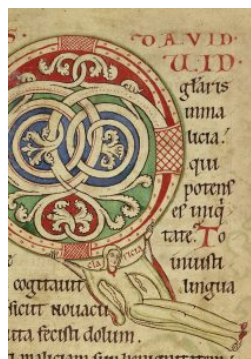 S · DAVID ·
UID ·
gl̃aris
inma
licia?
qui
potens
es iniq̃
tate. To
iniusti
cogitauit lingua
sicut nouacu
ita fecisti dolum.